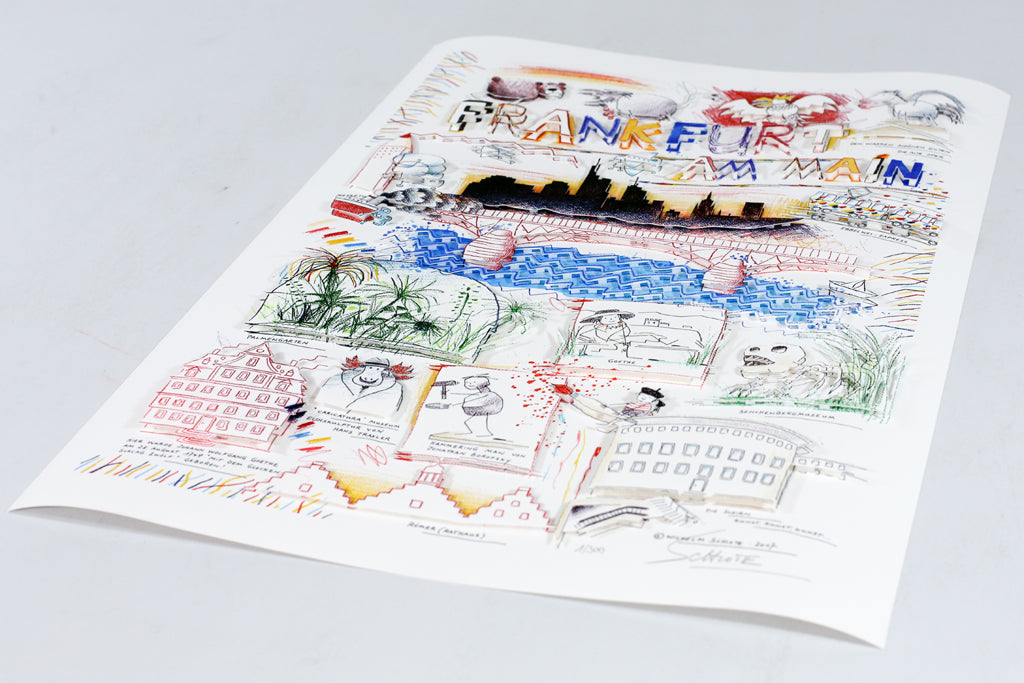 FRANKFURT
AM MAIN
PALMENGARTEN
GOETHE
SENCKENBERGMUSEUM
"CARICATURA" MUSEUM
HANS TRAXLER
HAMMERING MAN VON
JONATHAN BOROFSKY
HIER WURDE JOHANN WOLFGANG GOETHE
AM 28 AUGUST 1749 MIT DEM GLOCKEN
SCHLAG ZWÖLF GEBOREN
RÖMER (RATHAUS)
KUNST KUNST KUNST...
1/300
© WILHELM SCHLOTE · 2007
SCHLOTE